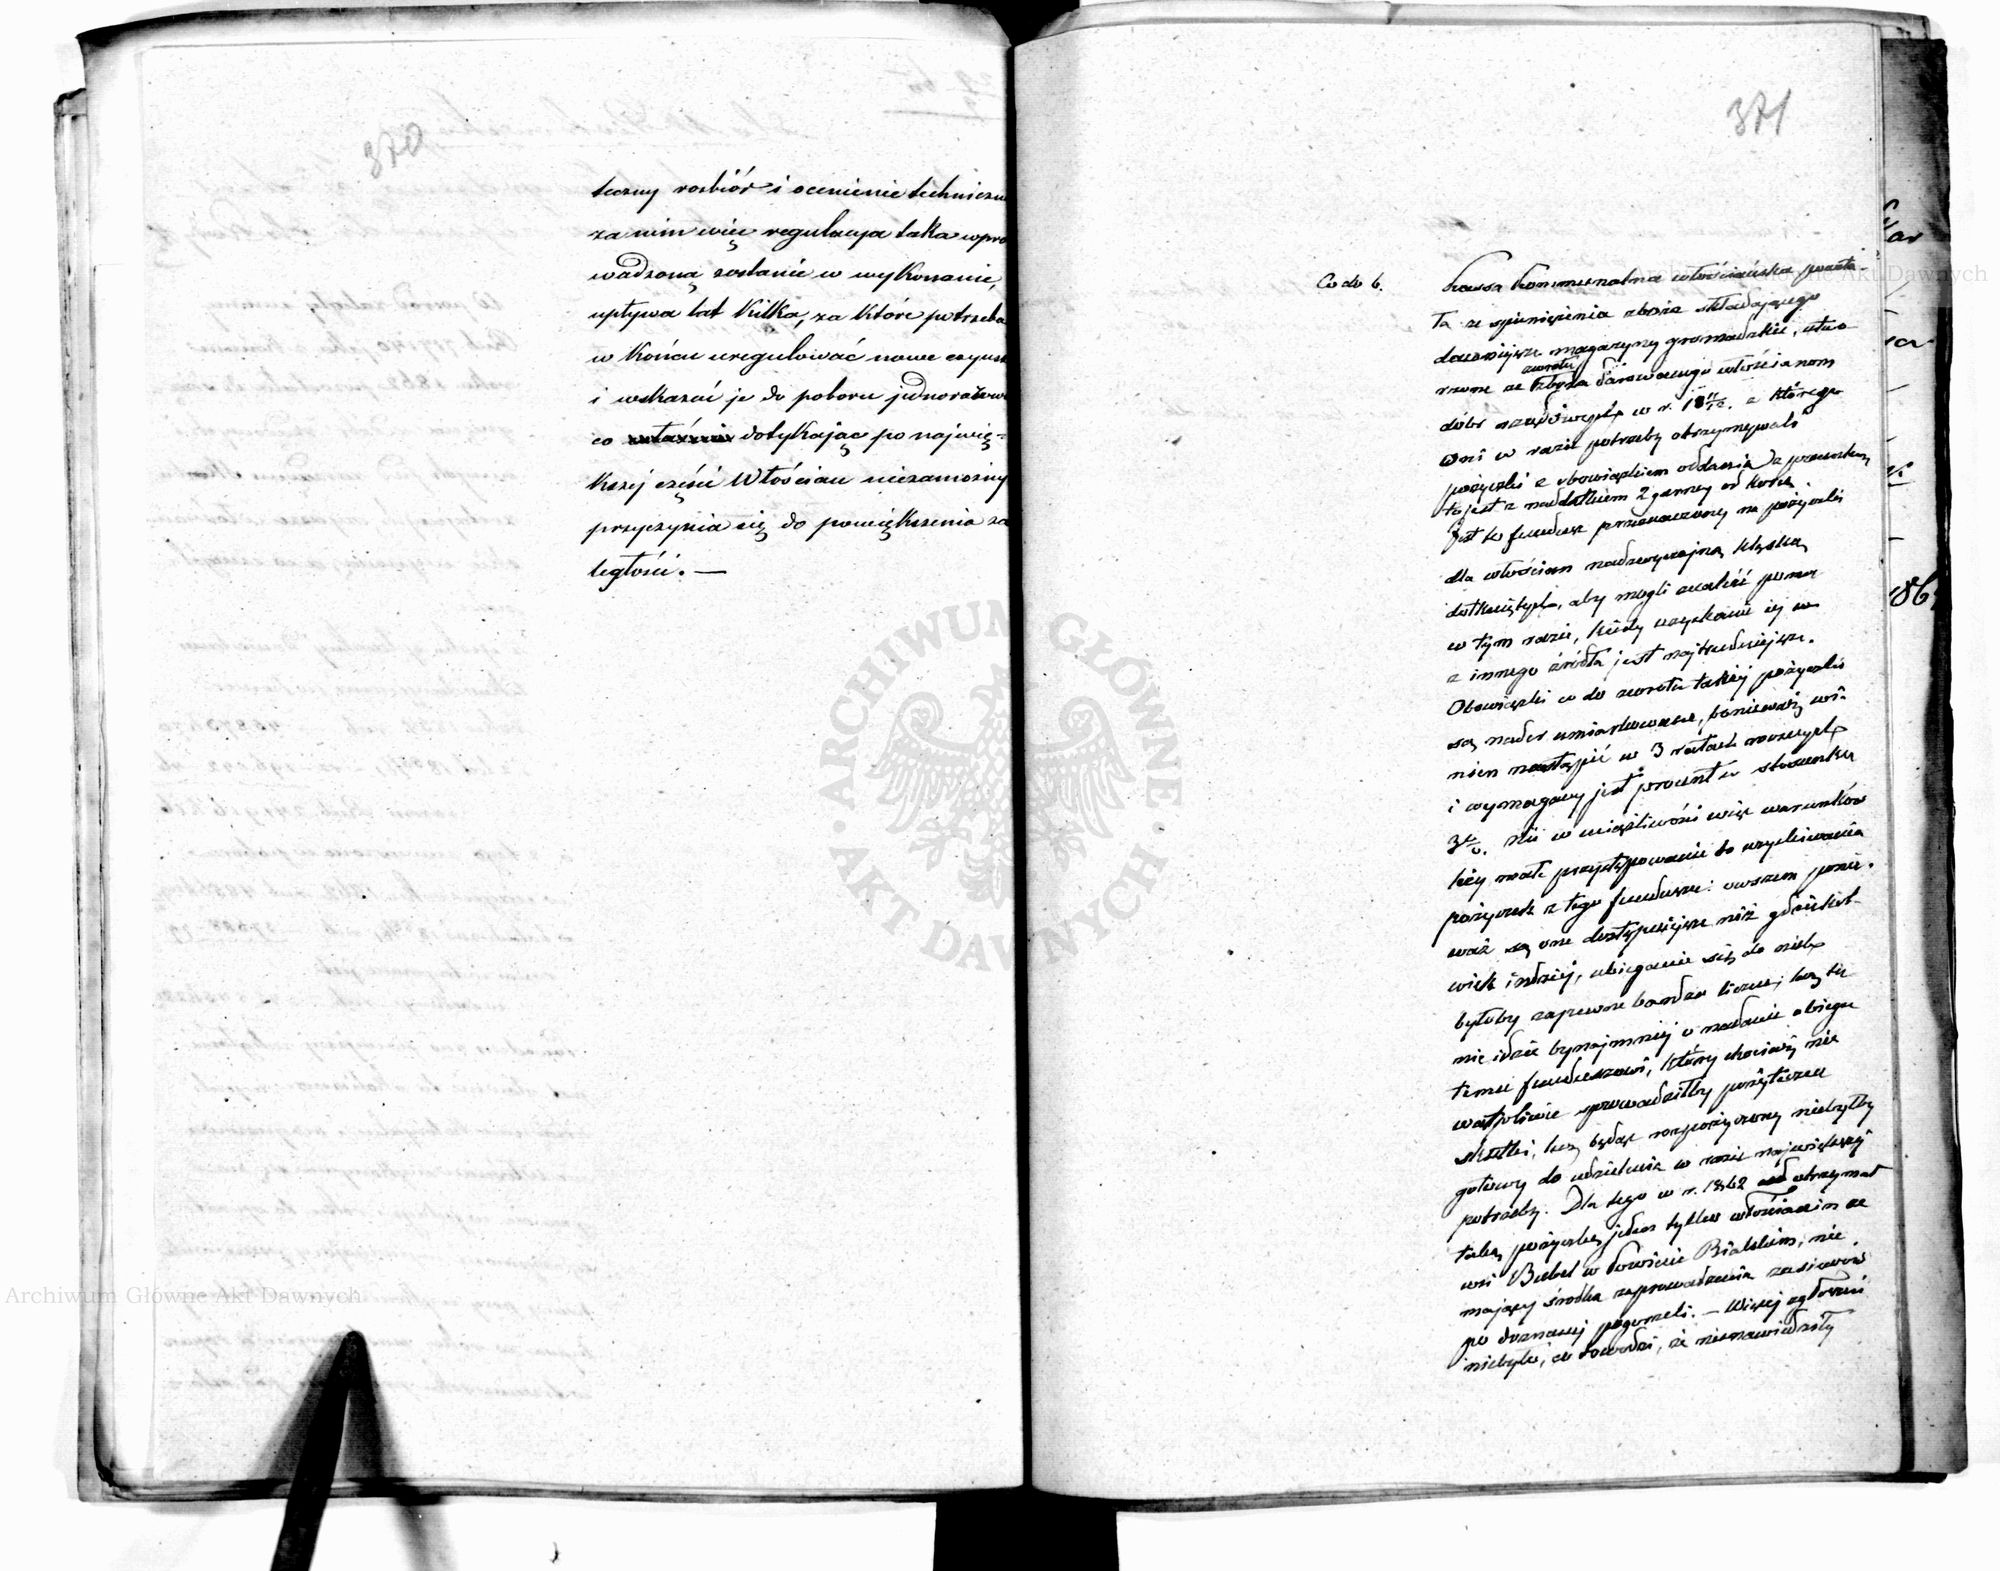 370
teczny rozbiór i ocenienie techniczn
za nim więc regulacya taka wpro
wadzoną zostanie w wykonanie,
upływa lat kilka, za które potrzeba
w końcu uregulować nowe czynsz
i wskazać je do poboru jednorazow
co dotykając po najwię-
kszej części Włościan niezamożny
przyczynia się do powiększenia za
ległości. —
371
Co do 6. Kassa Kommunalna włościańska powsta-
ła ze spieniężenia zboża składającego
dawniejsze magazyny gromadzkie, utwo
rzone ze zwrotu zboża darowanego włościanom
dóbr rządowych w r. 18 z którego
oni w razie potrzeby otrzymywali
pożyczki z obowiązkiem oddania z procentem
to jest z naddatkiem 2 garncy od korca.
Jest to fundusz przeznaczony na pożyczki
dla włościan nadzwyczajną klęską
dotkniętych, aby mogli znaleźć pomoc
w tym razie, kiedy uzyskanie jej
z innego źródła jest najtrudniejsze.
Obowiązki co do zwrotu takiej pożyczki
są nader umiarkowane, ponieważ wi-
nien nastąpić w 3 ratach rocznych
i wymagany jest procent w stosunku
3%. Nie w uciążliwości więc warunków
leży małe przystępowanie do uzyskiwania
pożyczek z tego funduszu: owszem ponie-
waż są one dostępniejsze niż gdziekol-
wiek indziej, ubieganie się do nich
byłoby zapewne bardzo liczne; lecz tu
nie idzie bynajmniej o nadanie obiegu
temu funduszowi, który chociaż nie
wątpliwie sprowadziłby pożyteczne
skutki, lecz będąc rozpożyczony niebyłby
gotowy do udzielenia w razie największej
potrzeby. Dla tego w r. 1862 otrzymał
taką pożyczkę jeden tylko włościanin ze
wsi Bubel w Powiecie Bialskim, nie
mający środka zaprowadzenia zasiewów
po doznanej pogorzeli. — Więcej zgłoszeń
niebyło, co dowodzi, że nienawiedziły
Archiwum Główne Akt Dawnych
ARCHIWUM GŁÓWNE · AKT DAWNYCH ·
Archiwum Główne Akt Dawnych